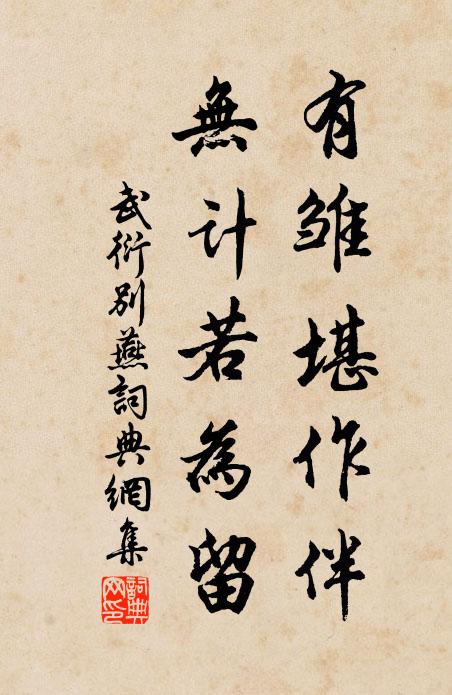 有雏堪作伴
無计若為留
武衍别燕詞典網集
詞典网印